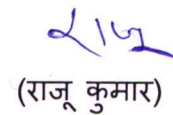 राजू
(राजू कुमार)